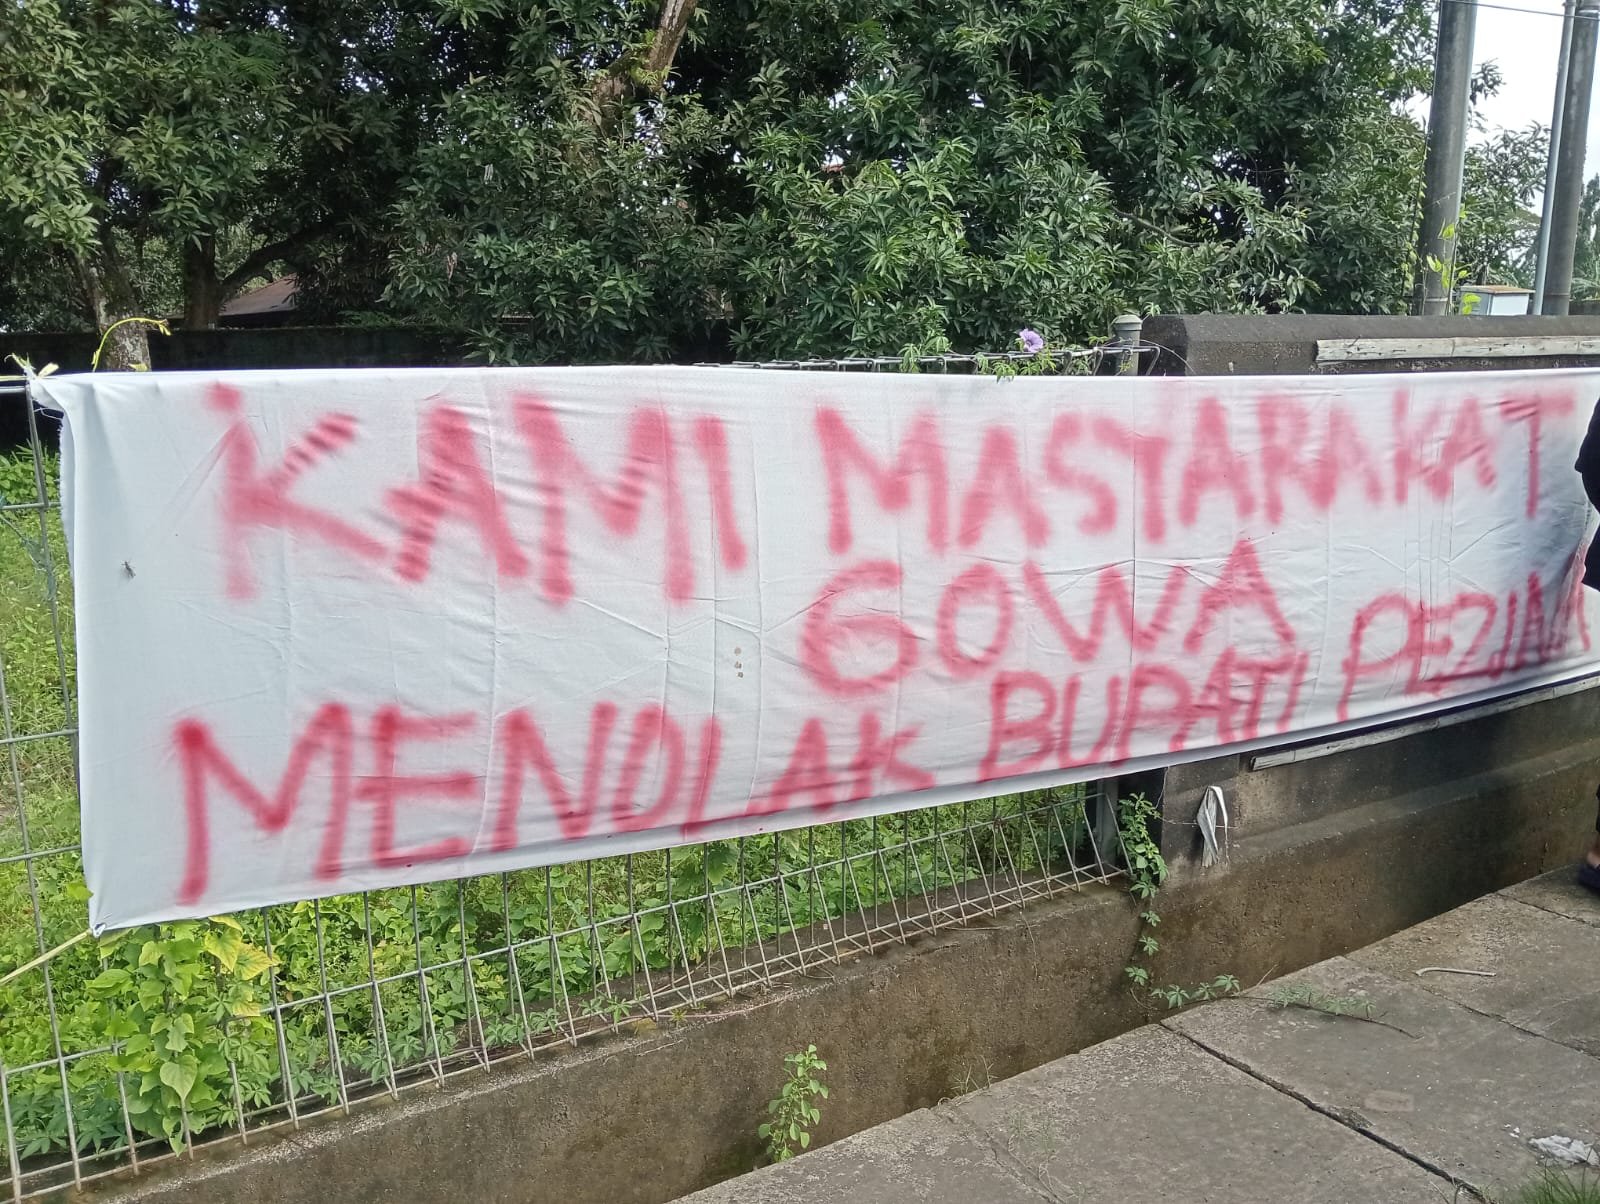 KAMI MASYARAKAT
GOWA
MENOLAK BUPATI PEZINA